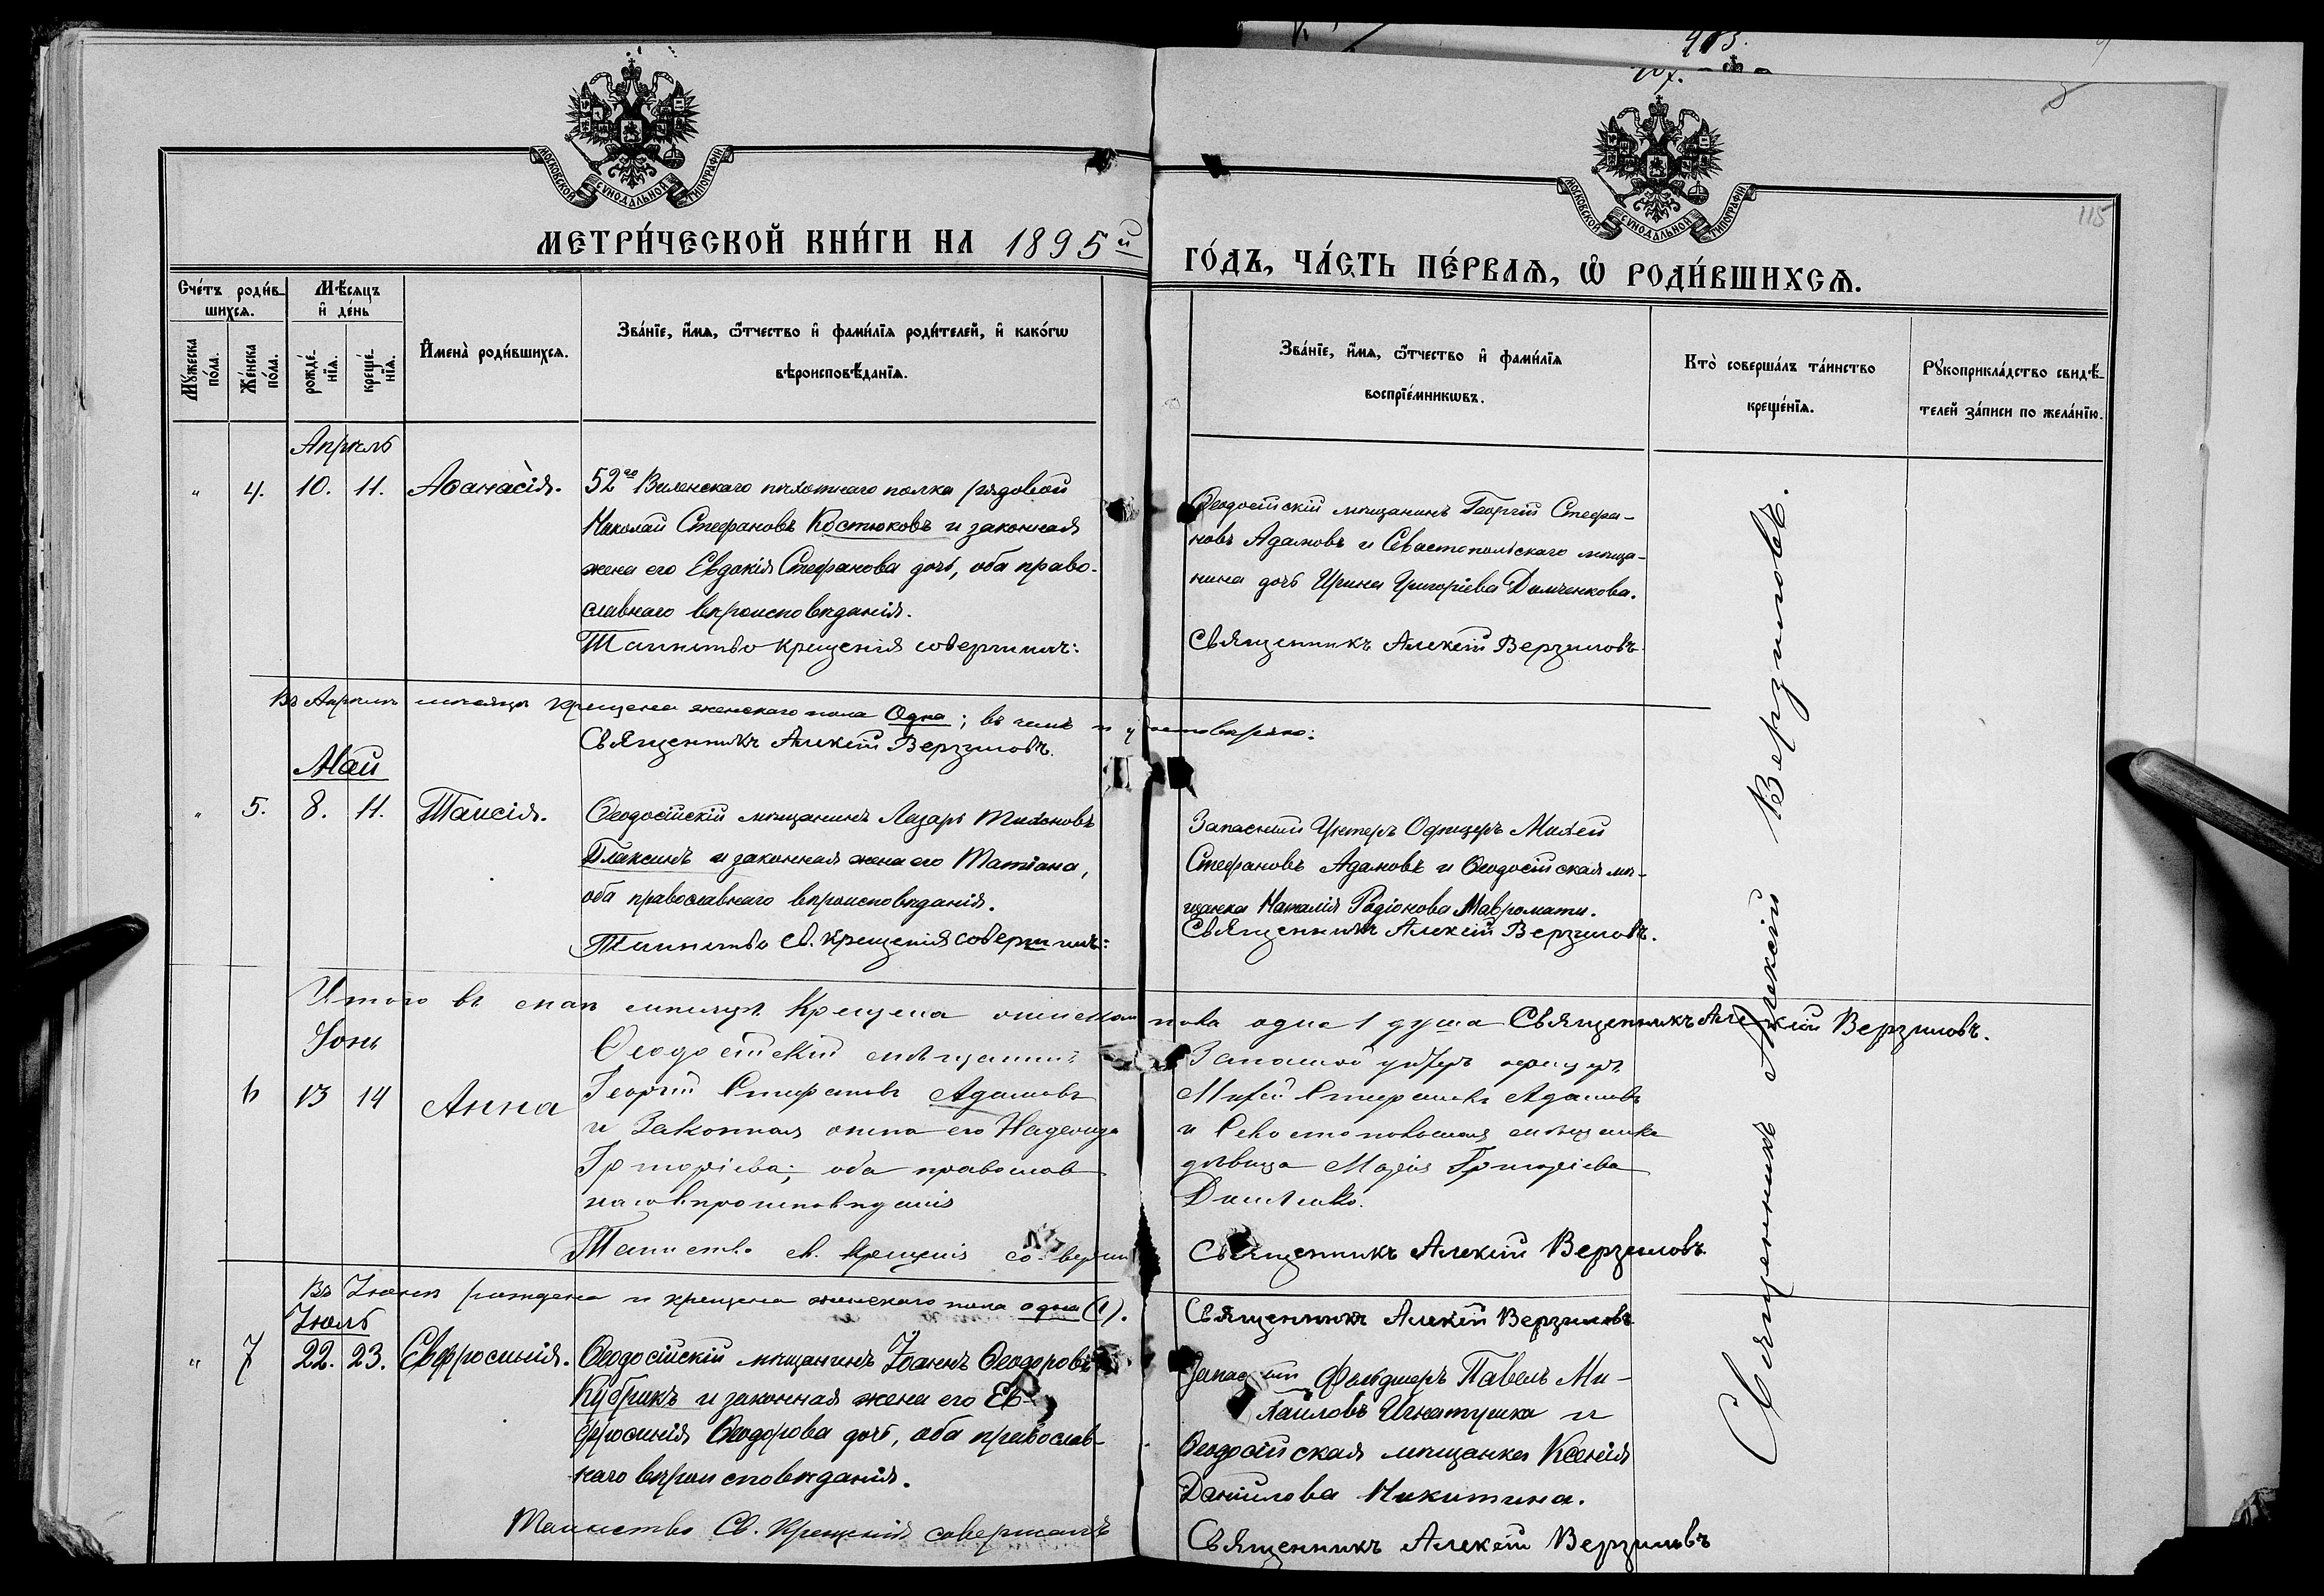 403.
МОСКОВСКОЙ СѴНОДАЛЬНОЙ ТИПОГРАФІИ
МОСКОВСКОЙ СѴНОДАЛЬНОЙ ТИПОГРАФІИ
115
МЕТРИ́ЧЕСКОЙ КНИ́ГИ НА 1895й
ГО́ДЪ, ЧА́СТЬ ПЕ́РВАѦ, Ѡ҆ РОДИ́ВШИХСѦ.
Сче́тъ роди́в-
шихсѧ.
Мѣ́сѧцъ
и҆ де́нь
Мꙋ́жеска по́ла.
Же́нска по́ла.
рожде́-
нїѧ.
креще́-
нїѧ.
И҆мена̀ роди́вшихсѧ.
Зва́нїе, и҆́мѧ, ѻ҆́тчество и҆ фами́лїѧ роди́телей, и҆ како́гѡ
вѣроисповѣ́данїѧ.
Зва́нїе, и҆́мѧ, ѻ҆́тчество и҆ фами́лїѧ
воспрїе́мникѡвъ.
Кто̀ соверша́лъ та́инство
креще́нїѧ.
Рꙋкоприкла́дство свидѣ́-
телей за́писи по жела́нїю.
Апрѣль
" 4. 10. 11. Аѳанасія.
52го Виленскаго пѣхотнаго полка рядовой
Николай Стефановъ Костюковъ и законная
жена его Евдокія Стефанова дочь, оба право-
славнаго вѣроисповѣданія.
Таинство крещенія совершилъ:
Ѳеодосійскій мѣщанинъ Георгій Стефа-
новъ Адамовъ и Севастопольскаго мѣща-
нина дочь Ирина Григоріева Демченкова.
Священникъ Алексій Верзиловъ
Въ Апрѣлѣ мѣсяцѣ крещена женскаго пола Одна; въ чемъ и удостовѣряю:
Священникъ Алексій Верзиловъ.
Май
" 5. 8. 11. Таисія.
Ѳеодосійскій мѣщанинъ Лазарь Тихоновъ
Плаксинъ и законная жена его Татіана,
оба православнаго вѣроисповѣданія.
Таинство Св. Крещенія совершилъ:
Запасный Унтеръ Офицеръ Михей
Стефановъ Адамовъ и Ѳеодосійская мѣ-
щанка Наталія Родіонова Мавромати.
Священникъ Алексій Верзиловъ.
Итого въ маѣ мѣсяцѣ крещена женскаго пола одна 1 душа Священникъ Алексій Верзиловъ.
Іюнь
6 13 14 Анна
Ѳеодосійскій мѣщанинъ
Георгій Стефановъ Адамовъ
и Законная жена его Надежда
Григоріева; оба православ
наго вѣроисповѣданія
Таинство св. Крещенія совершилъ
Запасной унтеръ офицеръ
Михей Стефановъ Адамовъ
и Севастопольская мѣщанка
дѣвица Марія Григоріева
Священникъ Алексій Верзиловъ
Въ Іюнѣ рождена и крещена женскаго пола одна (1).
Священникъ Алексій Верзиловъ
Іюль
" 7 22. 23. Евфросинія.
Ѳеодосійскій мѣщанинъ Іоаннъ Ѳеодоровъ
Кубрикъ и законная жена его Ев-
фросинія Ѳеодорова дочь, оба православ-
наго вѣроисповѣданія.
Таинство Св. Крещенія совершалъ
Запасный Фельдшеръ Павелъ Ми-
хайловъ Игнатушка и
Ѳеодосійская мѣщанка Ксенія
Даніилова Никитина.
Священникъ Алексій Верзиловъ
Священникъ Алексій Верзиловъ.